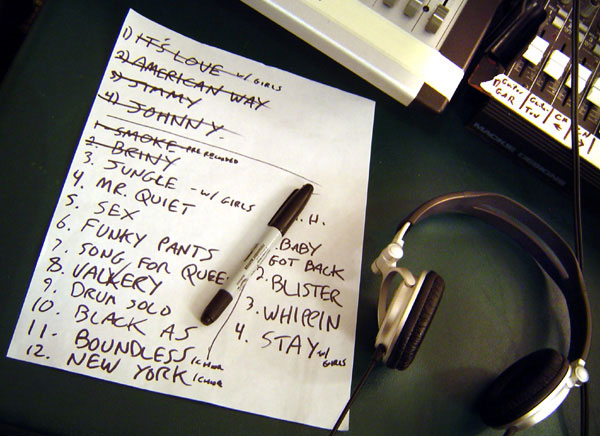 1) IT'S LOVE w/ GIRLS
2) AMERICAN WAY
3) JIMMY
4) JOHNNY
1. SMOKE PRE RECORDED
2. BRINY
3. JUNGLE - w/ GIRLS
4. MR. QUIET
5. SEX
6. FUNKY PANTS
7. SONG FOR QUEE
8. VALKERY
9. DRUM SOLO
10. BLACK AS
11. BOUNDLESS ICHOR
12. NEW YORK ICHOR
. H.
. BABY
GOT BACK
2. BLISTER
3. WHIPPIN
4. STAY w/
GIRLS
GAR
MACKIE DESIGNS